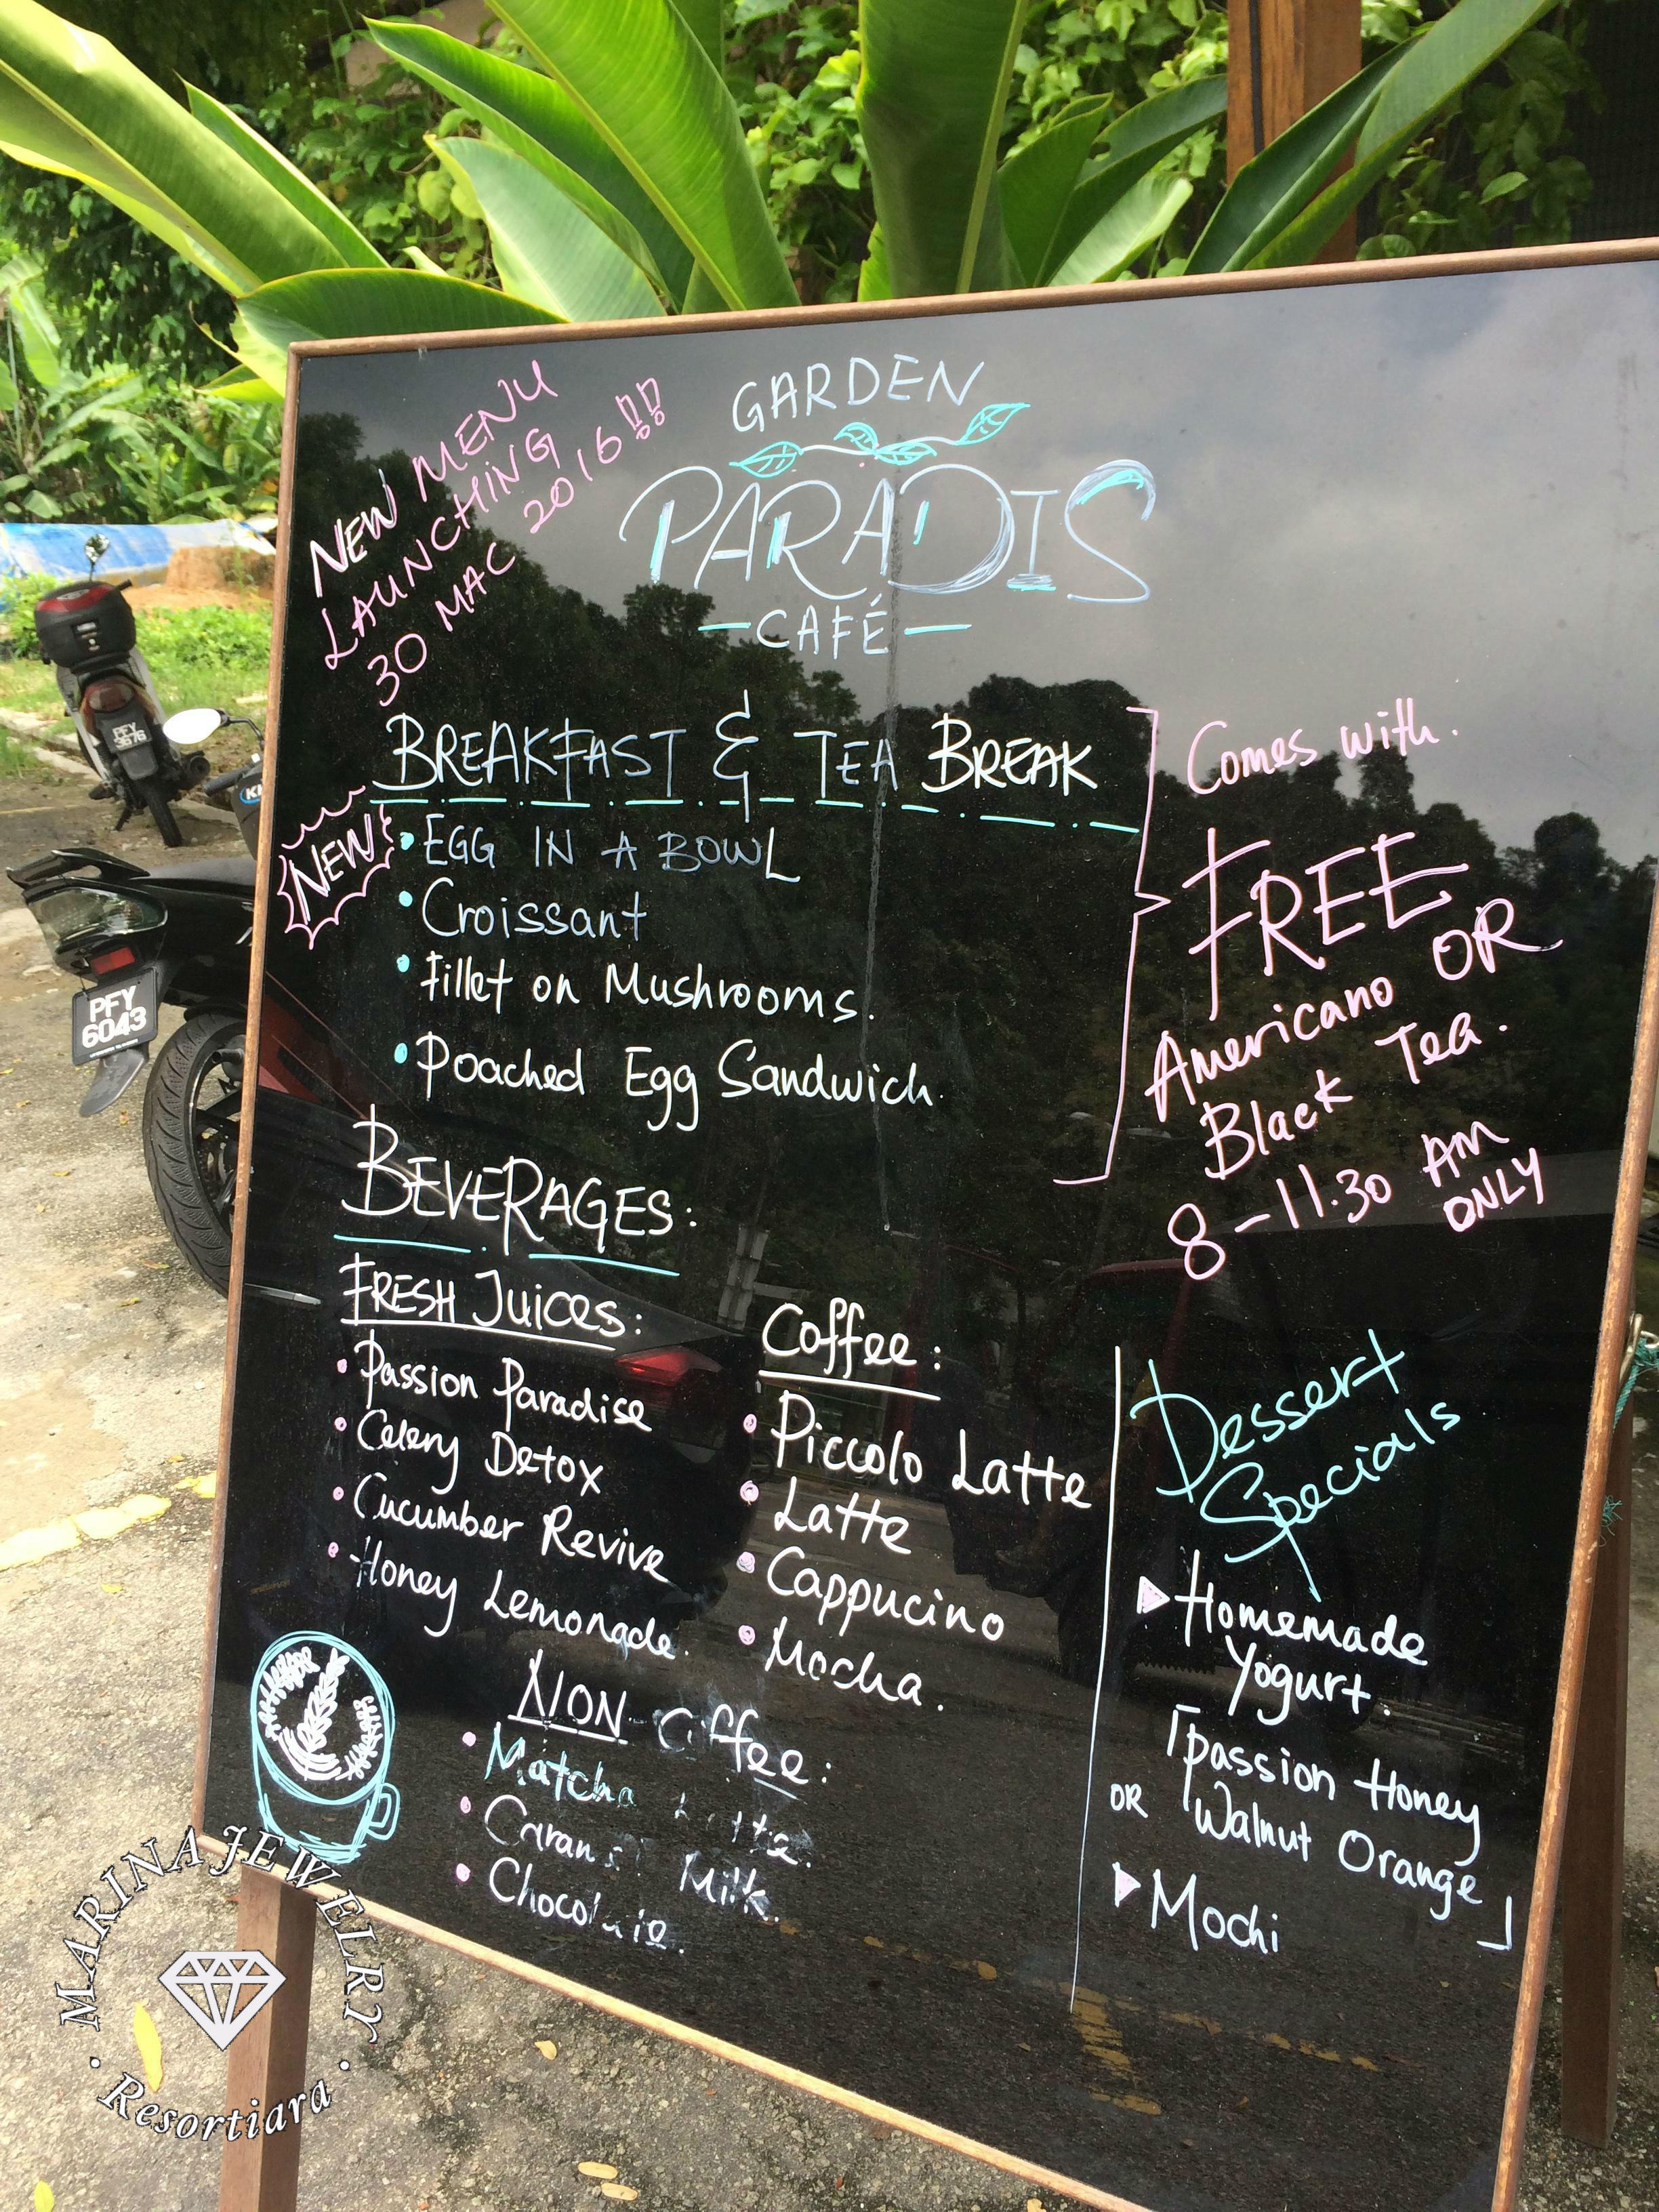 NEW MENU
LAUNCHING
30 MAC 2016!!!
GARDEN
PARADIS
CAFÉ
BREAKFAST & TEA BREAK
NEW!
EGG IN A BOWL
Croissant
Fillet on Mushrooms.
Poached Egg Sandwich.
Comes with.
FREE
Americano OR
Black Tea.
8-11.30 AM
ONLY
BEVERAGES:
FRESH JUICES:
Passion Paradise
Celery Detox
Cucumber Revive
Honey Lemonade.
Coffee:
Piccolo Latte
Latte
Cappucino
Mocha.
NON Coffee:
Matcha Latte.
Caramel Milk.
Chocolate.
Dessert
Specials
Homemade
Yogurt.
Passion Honey
OR Walnut Orange
Mochi
PFY
3676
PFY
6043
MARINAJEWELRY
Resortiara